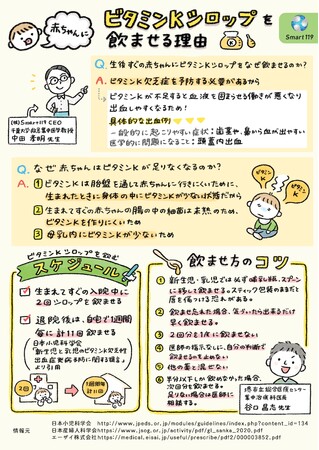 赤ちゃんに
ビタミンKシロップを
飲ませる理由
Smart119
Q. 生後すぐの赤ちゃんにビタミンKシロップをなぜ飲ませるのか?
A. ビタミンK欠乏症を予防する必要があるから
ビタミンKが不足すると血液を固まらせる働きが悪くなり
出血しやすくなるため!
具体的な出血(例)
一般的に起こりやすい症状:歯茎や、鼻から血が出やすい
医学的に問題になること:頭蓋内出血
(株)Smart119 CEO
千葉大学救急集中医学教授
中田 孝明 先生
Q. なぜ赤ちゃんはビタミンKが足りなくなるのか?
A.
① ビタミンKは胎盤を通して赤ちゃんに行きにくいために、
生まれたときに身体の中にビタミンKが少ない状態だから
② 生まれてすぐの赤ちゃんの腸の中の細菌は未熟のため、
ビタミンKを作りにくいため
③ 母乳内にビタミンKが少ないため
ビタミンK
ビタミンK
ビタミンKシロップを飲む
スケジュール
生まれてすぐの入院中に
2回シロップを飲ませる
退院後は、自宅で1週間
毎に計11回飲ませる
日本小児科学会
「新生児と乳児のビタミンK欠乏性
出血症発症予防に関する提言」
より引用
2回
1週間毎
計11回
飲ませ方のコツ
① 新生児・乳児では必ず哺乳瓶、スプーン
に移して飲ませる。スティック包装のままだと
唇を傷つける恐れがある。
② 飲ませ忘れた場合、気づいたら出来るだけ
早く飲ませる。
③ 2回分を1度に飲ませない
④ 医師の指示なしに、自分の判断で
飲ませるのを止めない
⑤ 他の薬と混ぜない
⑥ 半分以下しか飲めなかった場合、
次回分を飲ませる。
足りない場合は医師に
相談する。
堺市立総合医療センター
集中治療科医長
谷口 昌志 先生
情報元
日本小児科学会 http://www.jpeds.or.jp/modules/guidelines/index.php?content_id=134
日本産婦人科学会https://www.jsog.or.jp/activity/pdf/gl_sanka_2020.pdf
エーザイ株式会社https://medical.eisai.jp/useful/prescribe/pdf2/000003852.pdf